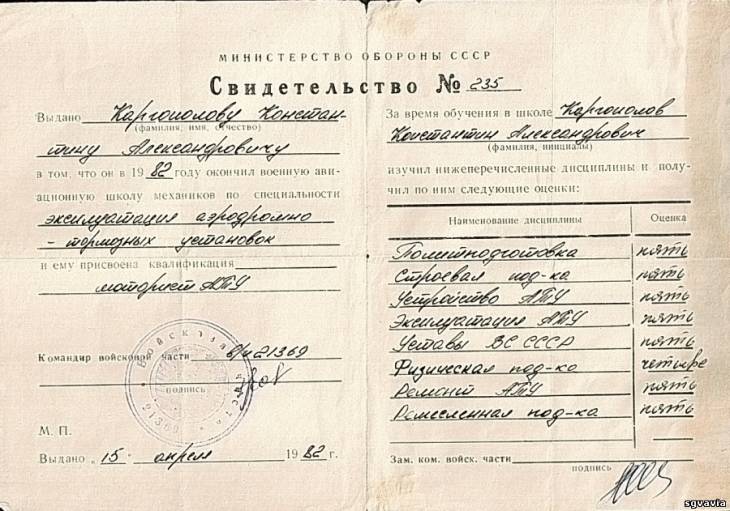 МИНИСТЕРСТВО ОБОРОНЫ СССР
Свидетельство № 235
Выдано Каргополову Констан-
(фамилия, имя, отчество)
тину Александровичу
в том, что он в 1982 году окончил военную ави-
ационную школу механиков по специальности
эксплуатация аэродромно
- тормозных установок
и ему присвоена квалификация
моторист АТУ
Командир войсковой части в/ч 21369
подпись
Войсковая часть 21369
М. П.
Выдано „15“ апрель 1982 г.
За время обучения в школе Каргополов
Константин Александрович
(фамилия, инициалы)
изучил нижеперечисленные дисциплины и полу-
чил по ним следующие оценки:
Наименование дисциплины Оценка
Политподготовка пять
Строевая под-ка пять
Устройство АТУ пять
Эксплуатация АТУ пять
Уставы ВС СССР пять
Физическая под-ка четыре
Ремонт АТУ пять
Ремесленная под-ка пять
Зам. ком. войск. части
подпись
sgvavia